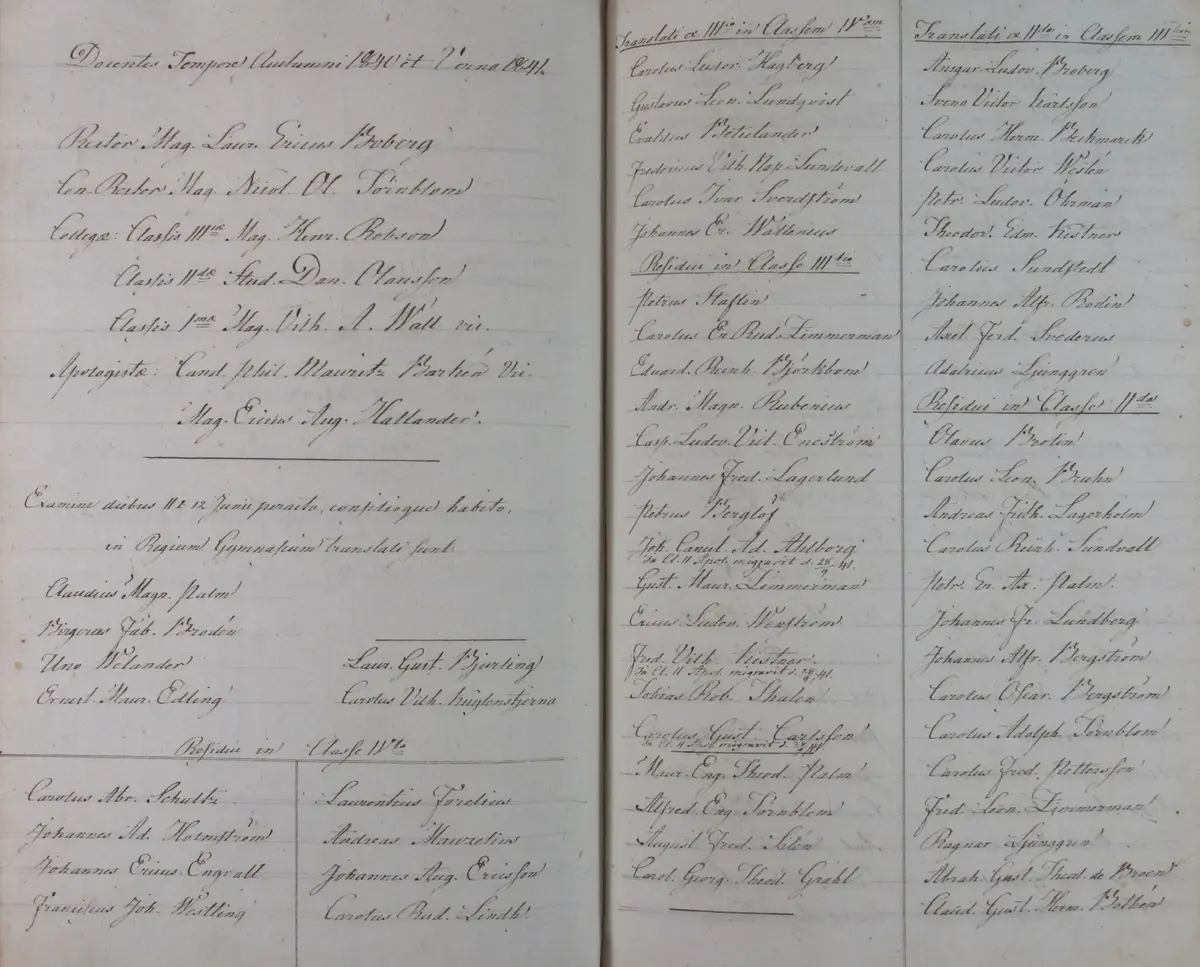 Docentes Tempore Autumni 1840 et Verno 1841.
Rector Mag. Laur. Ericus Broberg
Con Rector Mag. Nicol. Ol. Törnblom
Collegæ: Classis IIIiæ Mag. Henr. Robson
Classis IIdæ Stud. Dan. Olausson
Classis Imæ Mag. Vilh. A. Wall vic.
Apologistæ: Cand. phil. Mauritz Barthén Vic.
Mag. Ericus Aug. Hallander.
Examine diebus 11 & 12 Junii peracto, consilioque habito,
in Regium Gymnasium translati sunt:
Claudius Magn. Palm
Birgerus Fab. Brodén
Uno Welander
Ernest Maur. Edling
Laur. Gust. Bjurling
Carolus Vilh. Kuylenstjerna
Residui in Classe IVta
Carolus Abr. Schultz
Johannes Ad. Holmström
Johannes Ericus Engvall
Franciscus Joh. Westling
Laurentius Forelius
Andreas Mauzelius
Johannes Aug. Ericsson
Carolus Rud. Lindh.
Translati e IIIia in Classem IVtam
Carolus Ludov. Hagberg
Gustavus Leon. Lundqvist
Evaldus Botolander
Fredericus Vilh. Nap. Sundvall
Carolus Ivar Sverdström
Johannes Er. Wallenius
Residui in Classe IIItia
Petrus Staflin
Carolus Er. Rud. Zimmerman
Eduard. Reinh. Björkbom
Andr. Magn. Rubenius
Casp. Ludov. Vict. Eneström
Johannes Fred. Lagerlund
Petrus Berglöf
Joh. Canut. Ad. Ahlborg
In Cl. II Apol. migravit d. 28/9 41.
Gust. Maur. Zimmerman
Ericus Ludov. Wenström
Fred. Vilh. Kistner.
In Cl. II Apol. migravit d. 28/9 41.
Tobias Rob. Thalén
Carolus Gust. Carlsson
In Cl. II Apol. migravit d. 41
Maur. Eug. Theod. Palm
Alfred. Eug. Törnblom
August. Fred. Selén
Carol. Georg. Theod. Grahl
Translati e IIda in Classem IIItiam
Ansgar. Ludov. Broberg
Sveno Victor Karlsson
Carolus Herm. Beckmarck
Carolus Victor Weslén
Petr. Ludov. Ohrman
Theodor. Edm. Kistner
Carolus Sundstedt
Johannes Alfr. Bodin
Axel Ferd. Svederus
Adalricus Ljunggren
Residui in Classe IIda
Olavus Brolin
Carolus Leon. Bruhn
Andreas Frith. Lagerholm
Carolus Reinh. Sundvall
Petr. Er. Ax. Palm.
Johannes Fr. Lundberg
Johannes Alfr. Bergström
Carolus Oscar Bergström
Carolus Adolph. Törnblom
Carolus Fred. Pettersson
Fred. Leon. Zimmerman
Ragnar Ljunggren
Abrah. Gust. Theod. de Broen
Claud. Gust. Herm. Bothén